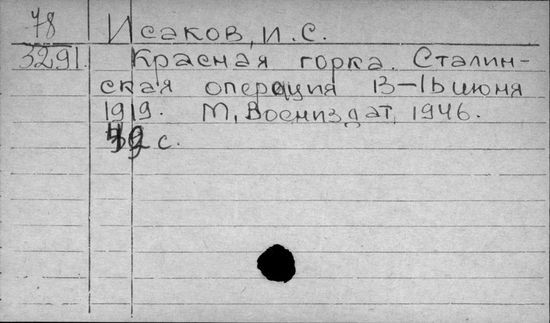 78 Исаков, И. С.
3291. Красная горка. Сталин-
ская операция 13-16 июня
1919. М, Воениздат, 1946.
с.